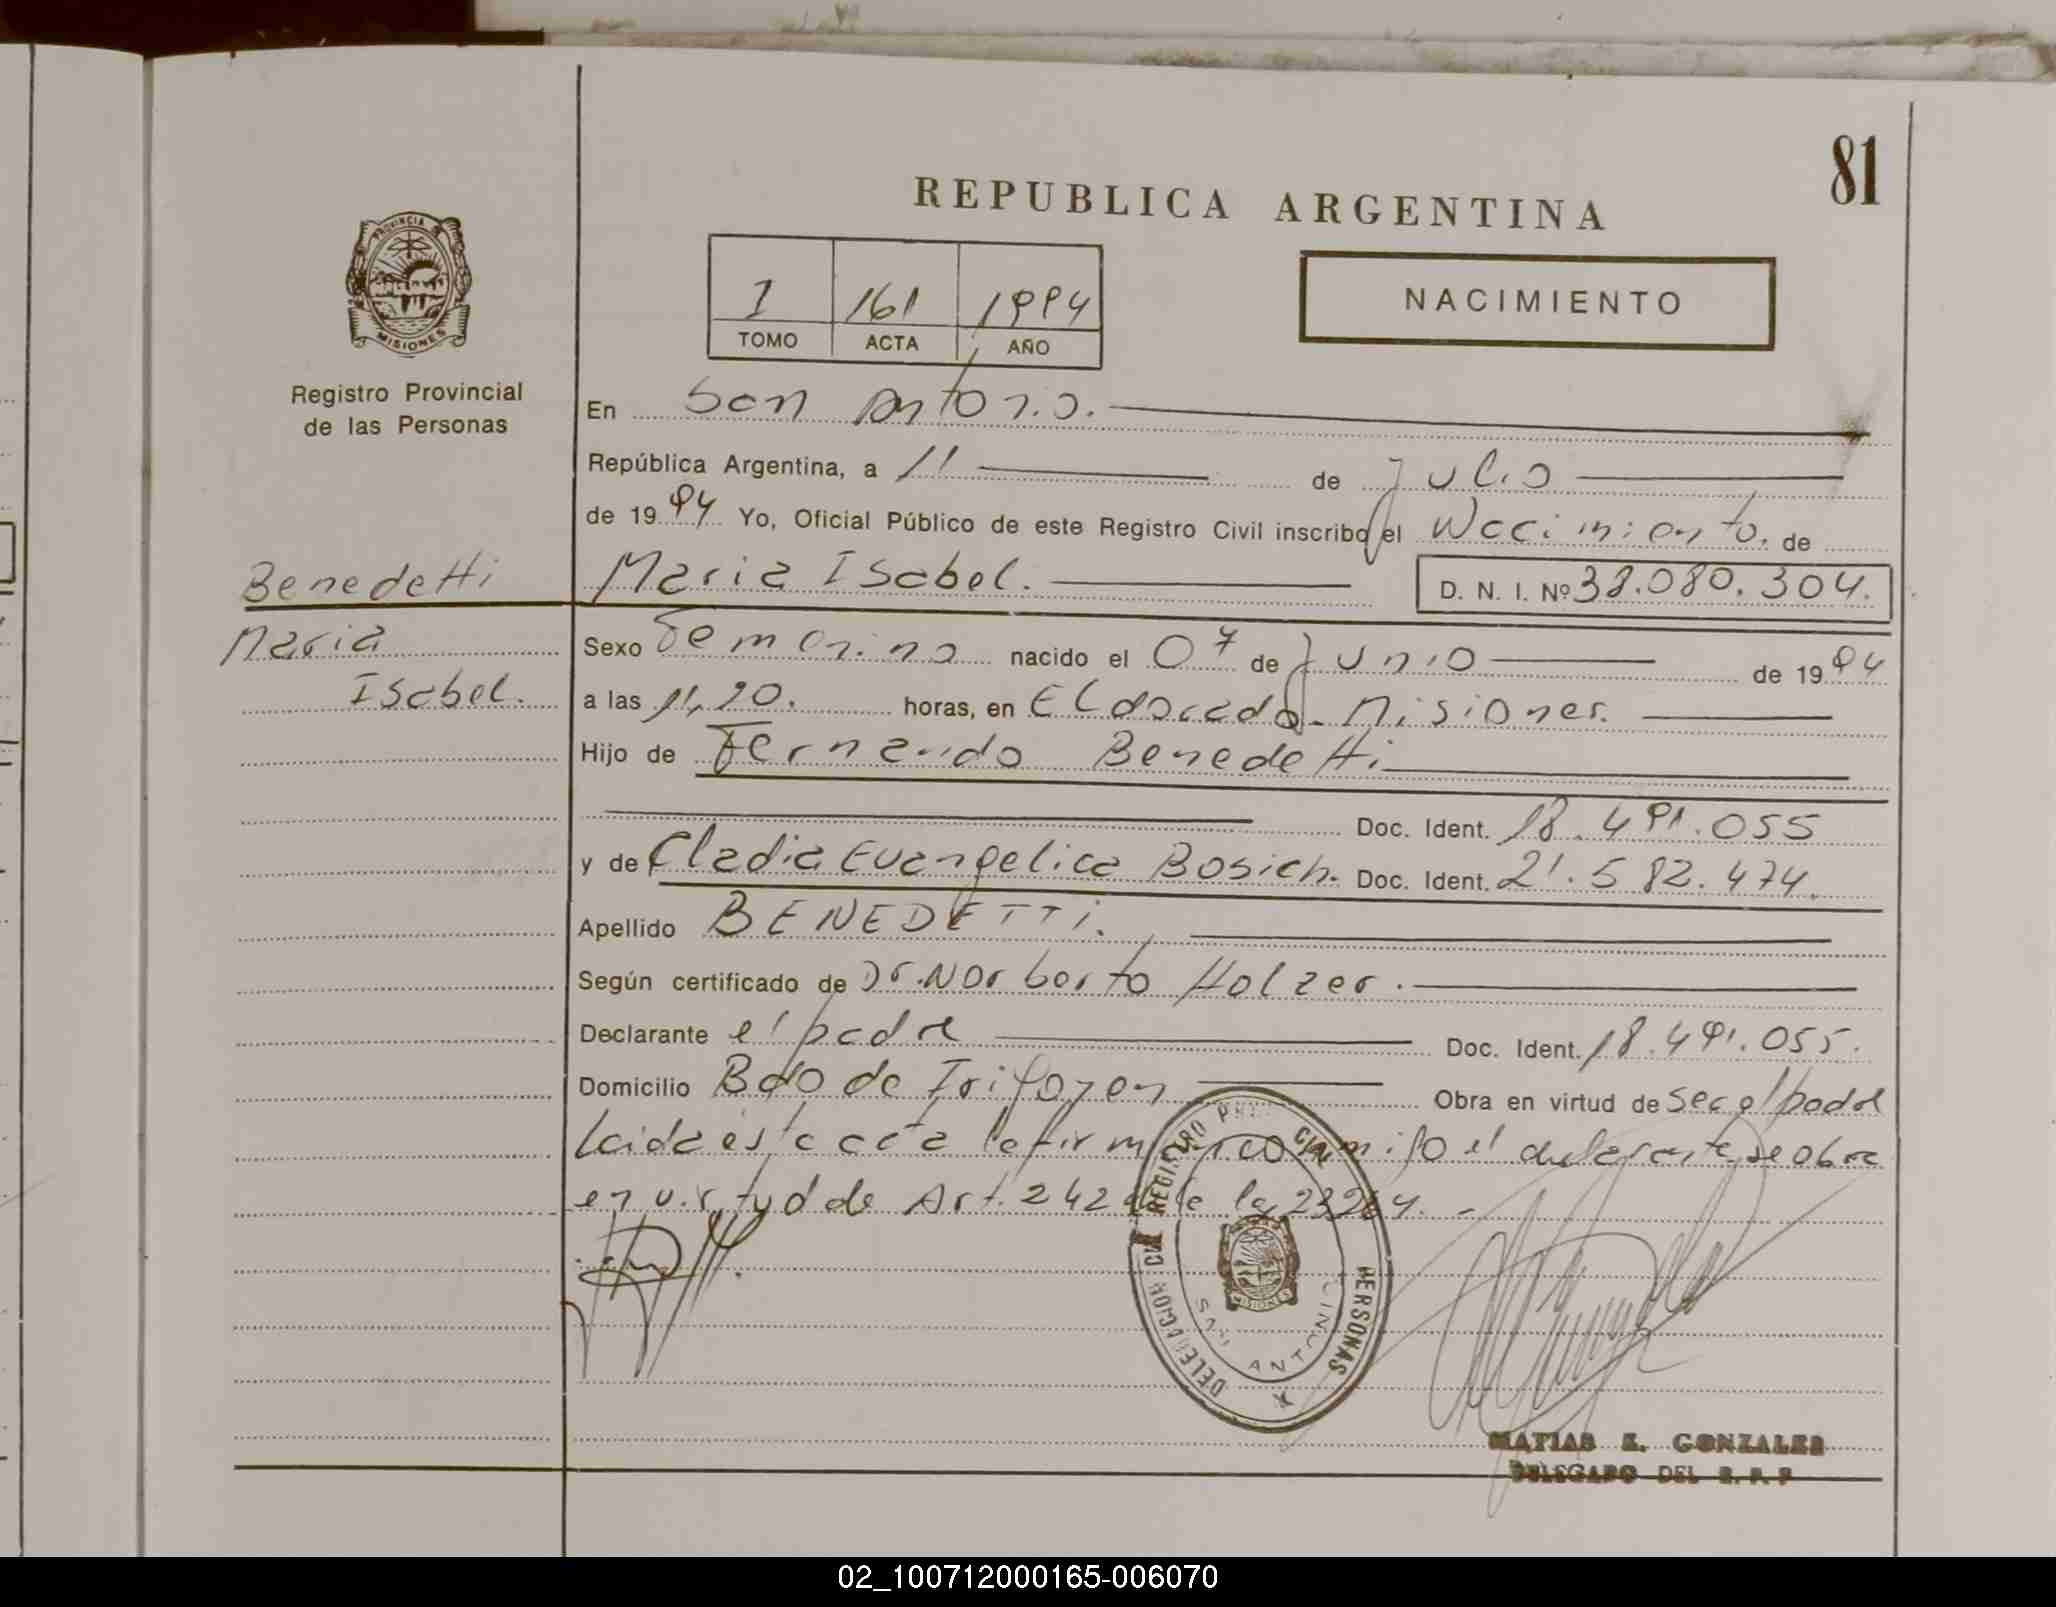 81
REPUBLICA ARGENTINA
PROVINCIA
MISIONES
Registro Provincial
de las Personas
1 161 1994
TOMO ACTA AÑO
NACIMIENTO
En San Antonio.
República Argentina, a 11 de Julio
de 1994 Yo, Oficial Público de este Registro Civil inscribo el Nacimiento. de
Benedetti
Maria Isabel. D. N. I. Nº 38.080.304.
Maria
Isabel.
Sexo Femenino nacido el 07 de Junio de 1994
a las 11,20. horas, en Eldorado - Misiones.
Hijo de Fernando Benedetti
Doc. Ident. 18.491.055
y de Cladia Evangelica Bosich. Doc. Ident. 21.582.474.
Apellido BENEDETTi.
Según certificado de Dr. Norberto Holzer.
Declarante el padre Doc. Ident. 18.491.055.
Domicilio Bdo de Irigoyen Obra en virtud de ser el padre
Leida esta acta la firma conmigo el declarante, se obra
en virtud de Art. 242 de la 23264. -
DELEGACION REGISTRO PROVINCIAL PERSONAS
SAN ANTONIO
MISIONES
MATIAS E. GONZALES
DELEGADO DEL R.P.P
02_100712000165-006070